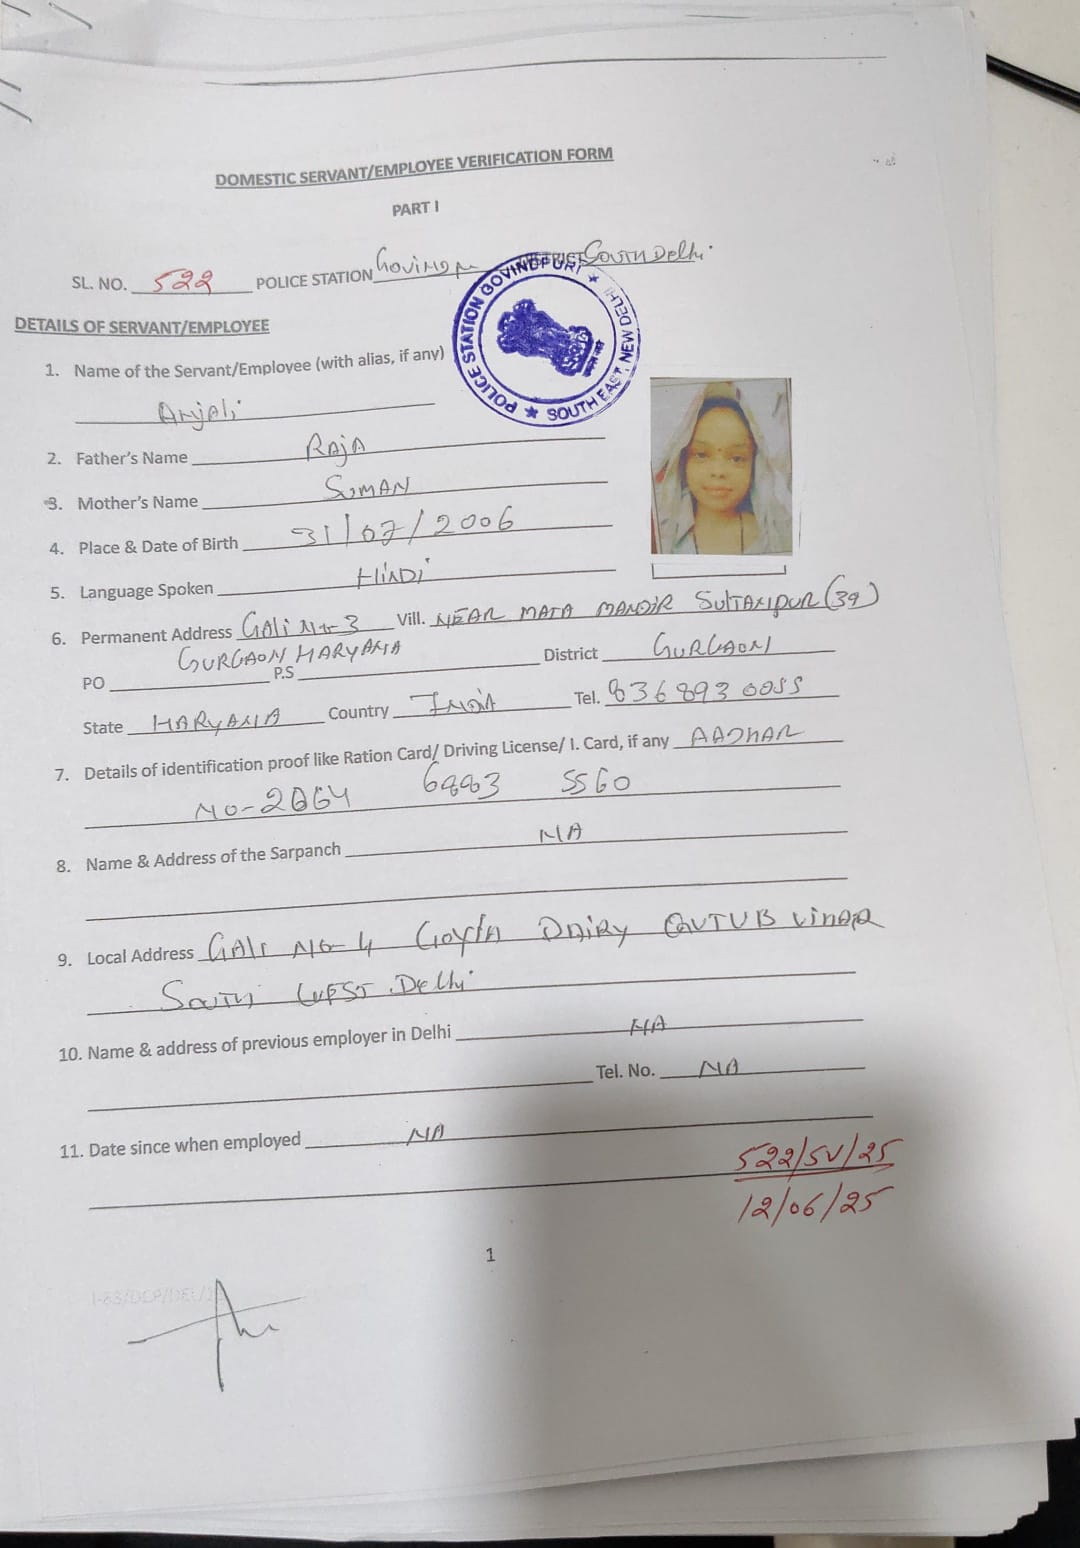 DOMESTIC SERVANT/EMPLOYEE VERIFICATION FORM
PART I
SL. NO. 522 POLICE STATION DISTRICT South Delhi
POLICE STATION GOVINDPURI ★ SOUTH EAST, NEW DELHI ★
DETAILS OF SERVANT/EMPLOYEE
1. Name of the Servant/Employee (with alias, if any)
Anjali
2. Father's Name RAJA
3. Mother's Name SUMAN
4. Place & Date of Birth 31/07/2006
5. Language Spoken HINDI
6. Permanent Address GALI No-3 Vill. NEAR MATA MANDIR SULTANPUR (39)
GURGAON HARYANA
PO P.S District GURGAON
State HARYANA Country INDIA Tel. 8368930055
7. Details of identification proof like Ration Card/ Driving License/ I. Card, if any AADHAR
NO- 5560
8. Name & Address of the Sarpanch NA
9. Local Address GALI NO-4 DAIRY QUTUB VIHAR
SOUTH WEST Delhi
10. Name & address of previous employer in Delhi NA
Tel. No. NA
11. Date since when employed NA
522/SV/25
12/06/25
1